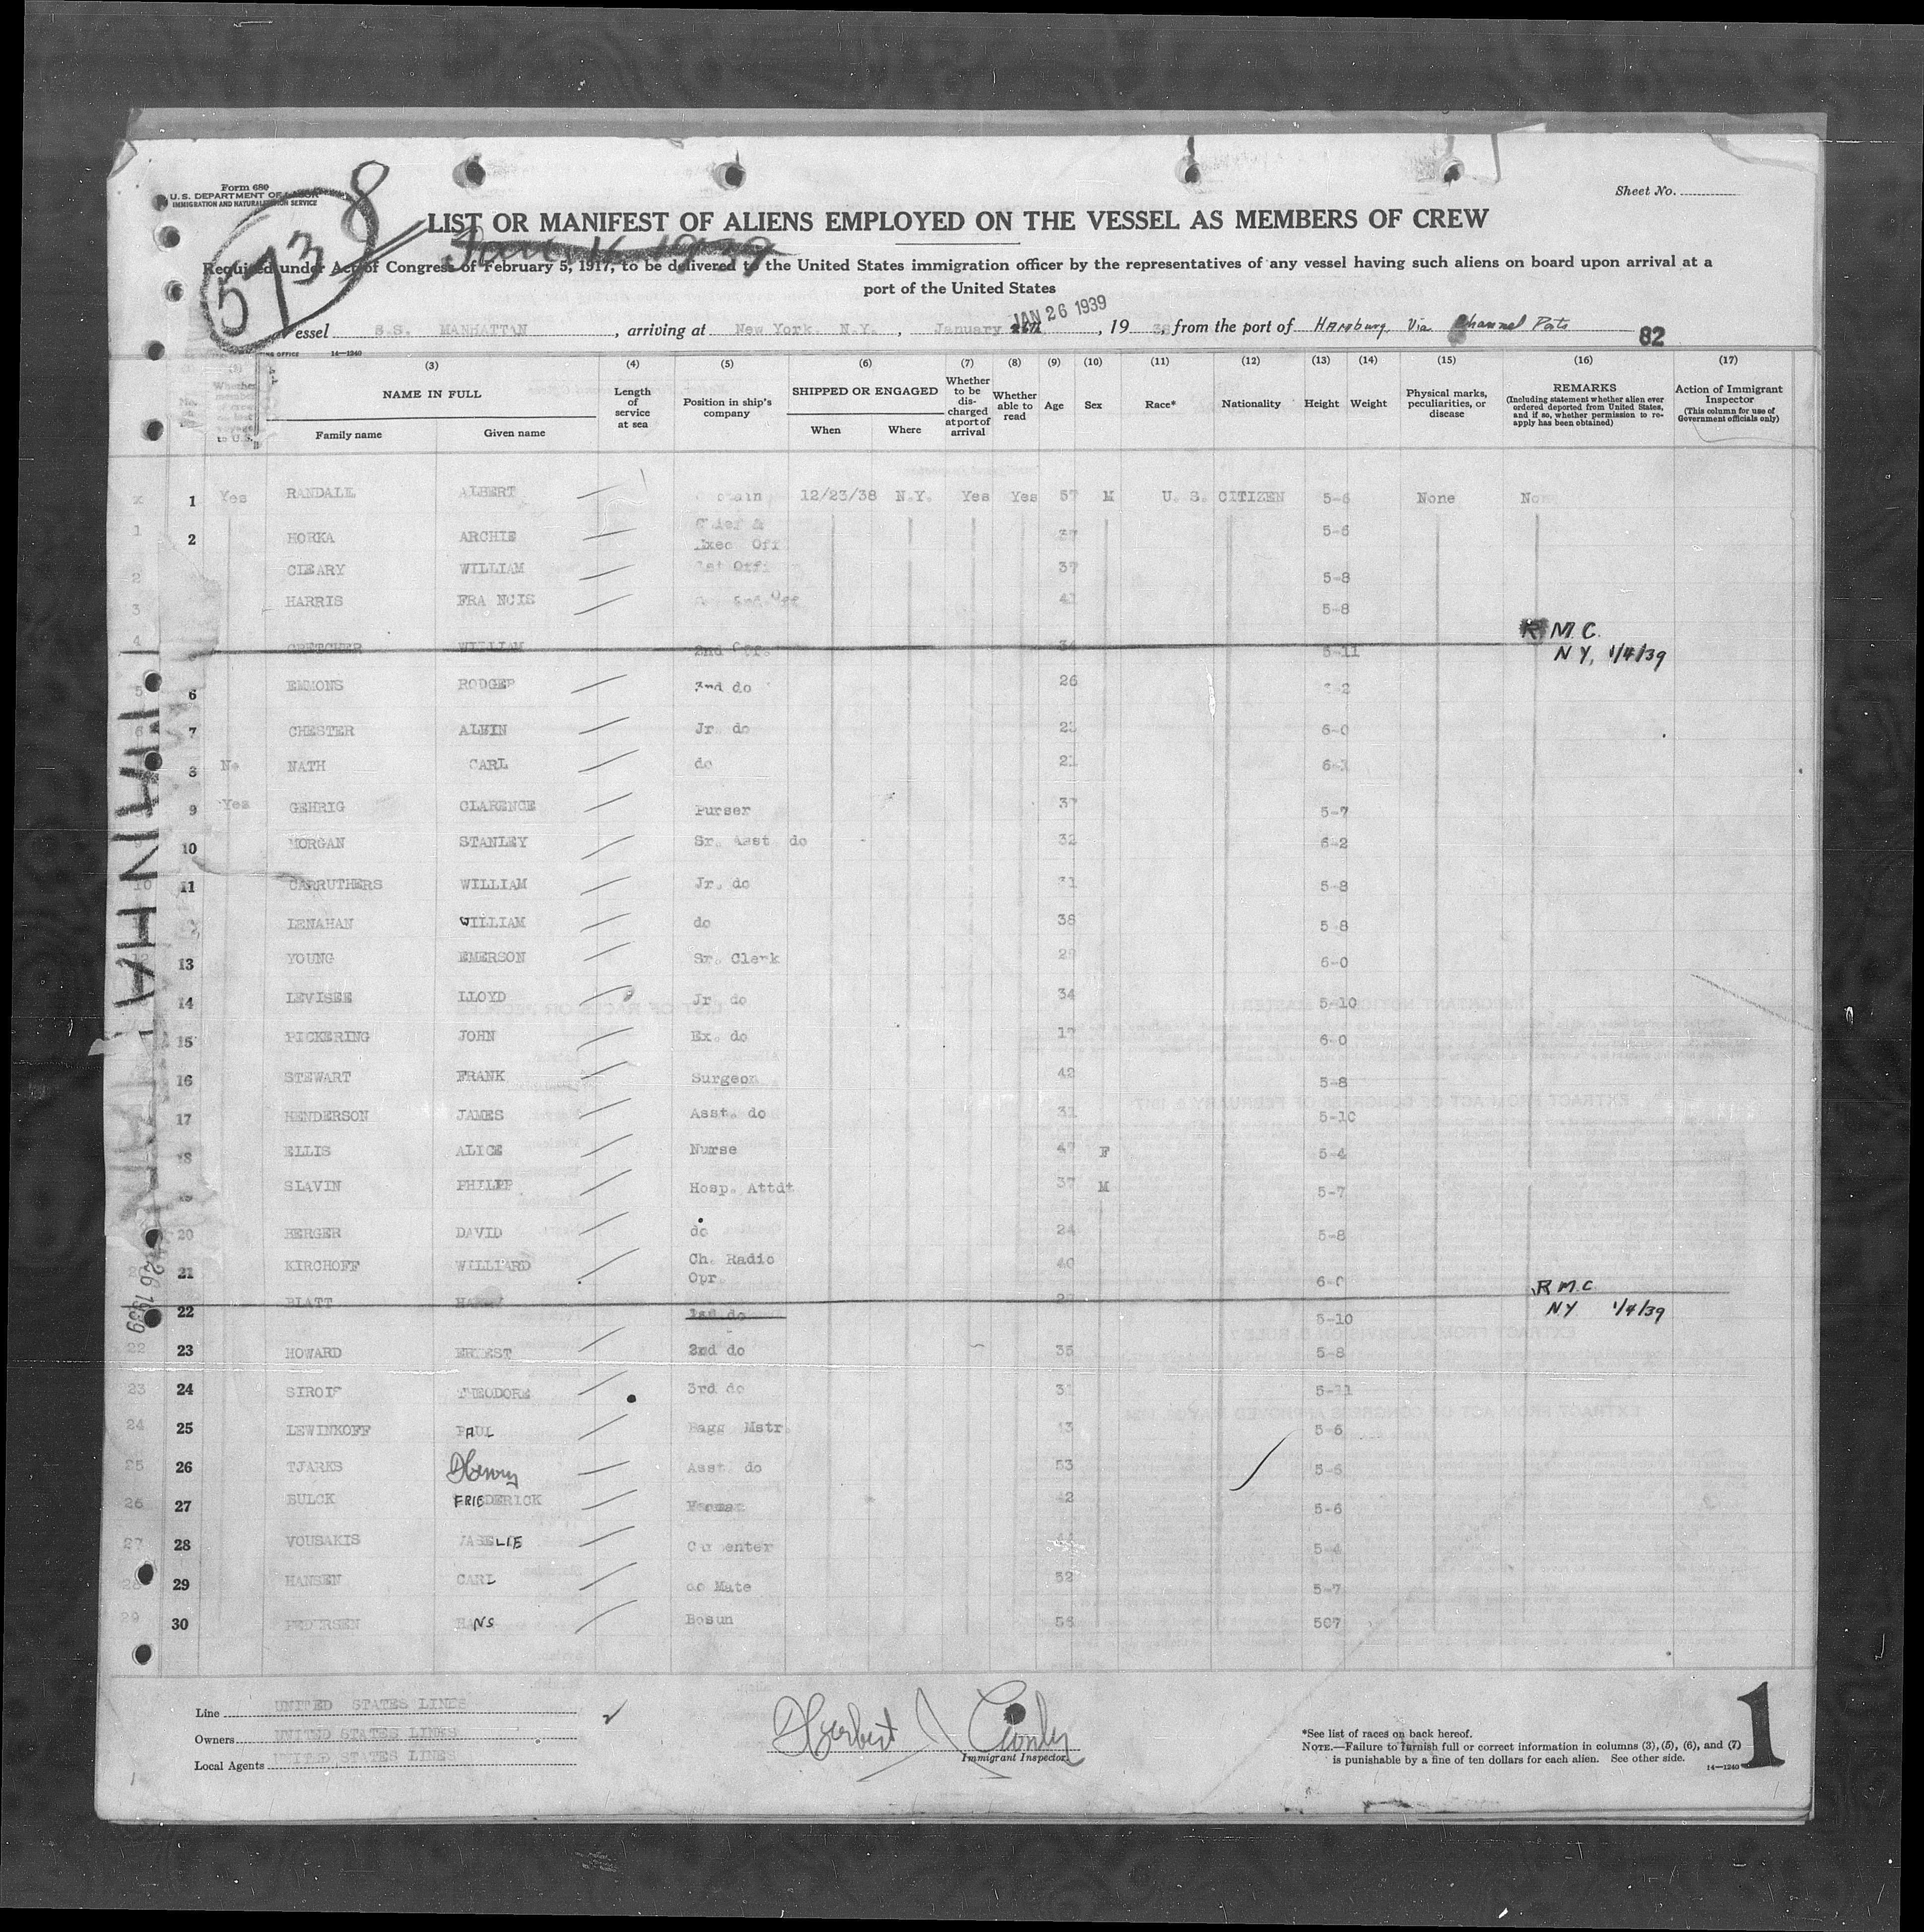 Form 680
U. S. DEPARTMENT OF LABOR
IMMIGRATION AND NATURALIZATION SERVICE
Sheet No.
5738
LIST OR MANIFEST OF ALIENS EMPLOYED ON THE VESSEL AS MEMBERS OF CREW
Required under Act of Congress of February 5, 1917, to be delivered to the United States immigration officer by the representatives of any vessel having such aliens on board upon arrival at a
port of the United States
JAN 26 1939
Vessel S.S. MANHATTAN, arriving at New York N.Y., January, 19, from the port of Hamburg Via Channel Ports 82
14—1240
(3) (4) (5) (6) (7) (8) (9) (10) (11) (12) (13) (14) (15) (16) (17)
NAME IN FULL
Family name Given name
Length of service at sea
Position in ship's company
SHIPPED OR ENGAGED
When Where
Whether to be discharged at port of arrival
Whether able to read
Age Sex Race* Nationality Height Weight
Physical marks, peculiarities, or disease
REMARKS
(Including statement whether alien ever ordered deported from United States, and if so, whether permission to reapply has been obtained)
Action of Immigrant Inspector
(This column for use of Government officials only)
1 Yes RANDALL ALBERT 12/23/38 N.Y. Yes Yes 57 M U. S. CITIZEN 5-6 None
2 HORKA ARCHIE Chief & Exec Off 37 5-6
CLEARY WILLIAM 1st Off 37 5-8
HARRIS FRANCIS 41 5-8
CRETCHER WILLIAM 2nd Off. 34 5-11 R M.C. NY, 1/4/39
6 EMMONS RODGER 3nd do 26
7 CHESTER ALVIN Jr. do 6-0
8 No NATH CARL do 21 6-1
9 Yes GEHRIG CLARENCE Purser 37 5-7
10 MORGAN STANLEY Sr. Asst do 32 6-2
11 CARRUTHERS WILLIAM Jr. do 31 5-8
LENAHAN WILLIAM do 38 5-8
13 YOUNG EMERSON Sr. Clerk 29 6-0
14 LEVISEE LLOYD Jr do 34 5-10
15 PICKERING JOHN Ex. do 17 6-0
16 STEWART FRANK Surgeon 42 5-8
17 HENDERSON JAMES Asst. do 31 5-10
18 ELLIS ALICE Nurse 47 F 5-4
19 SLAVIN PHILIP Hosp. Attdt 37 M 5-7
20 BERGER DAVID do 24 5-8
21 KIRCHOFF WILLIARD Ch. Radio Opr. 40 6-0
22 BLATT 1st do 5-10 R M.C. NY 1/4/39
23 HOWARD ERNEST 2nd do 35 5-8
24 SIROIF THEODORE 3rd do 31 5-11
25 LEWINKOFF PAUL Bagg Mstr. 43 5-6
26 TJARKS Henry Asst do 53 5-6
27 BULCK FRIEDERICK Yeoman 42 5-6
28 VOUSAKIS VASELIE Carpenter 44 5-4
29 HANSEN CARL do Mate 52 5-7
30 PEDERSEN HANS Bosun 56 507
Line UNITED STATES LINES
Owners UNITED STATES LINES
Local Agents UNITED STATES LINES
Herbert J Conly
Immigrant Inspector
*See list of races on back hereof.
NOTE.—Failure to furnish full or correct information in columns (3), (5), (6), and (7)
is punishable by a fine of ten dollars for each alien. See other side.
14—1240
1